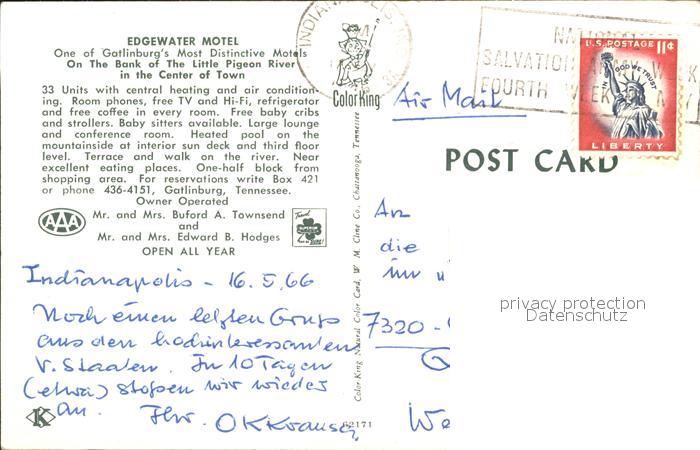 EDGEWATER MOTEL
One of Gatlinburg's Most Distinctive Motels
On The Bank of The Little Pigeon River
in the Center of Town
33 Units with central heating and air condition-
ing. Room phones, free TV and Hi-Fi, refrigerator
and free coffee in every room. Free baby cribs
and strollers. Baby sitters available. Large lounge
and conference room. Heated pool on the
mountainside at interior sun deck and third floor
level. Terrace and walk on the river. Near
excellent eating places. One-half block from
shopping area. For reservations write Box 421
or phone 436-4151, Gatlinburg, Tennessee.
Owner Operated
AAA
Mr. and Mrs. Buford A. Townsend
and
Mr. and Mrs. Edward B. Hodges
OPEN ALL YEAR
Indianapolis - 16.5.66
Noch einen letzten Gruss
aus den hochinteressanten
V. Staaten. In 10 Tagen
(etwa) stoßen wir wieder
an. Ihr
K
ColorKing
Color-King Natural Color Card, W. M. Cline Co., Chattanooga, Tennessee
62171
INDIANAPOLIS
SALVATION
FOURTH WEEK
U.S. POSTAGE 11¢
IN GOD WE TRUST
LIBERTY
Air Mail
POST CARD
An
die
im
7320 -
We
privacy protection
Datenschutz